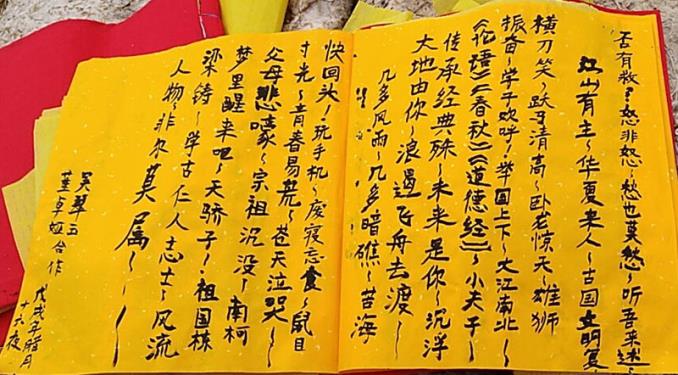 否有救?怒非怒~愁也莫愁~听吾来述~
江山有主~华夏来人~古国文明复~
横刀笑~跃于清高~卧龙惊天~雄狮
振奋~学子欢呼~举国上下~大江南北~
《论语》《春秋》《道德经》~小夫子~
传承经典殊~未来是你~沉浮
大地由你~浪遏飞舟去渡~
几多风雨~几多暗礁~苦海
快回头~玩手机~废寝忘食~鼠目
寸光~青春易荒~苍天泣哭~
父母悲嚎~宗祖沉没~南柯
梦里醒来吧~天骄子~祖国栋
梁铸~学古仁人志士~风流
人物~非尔莫属~~~
吴翠玉
董卓娅合作 戊戌年腊月
十六夜